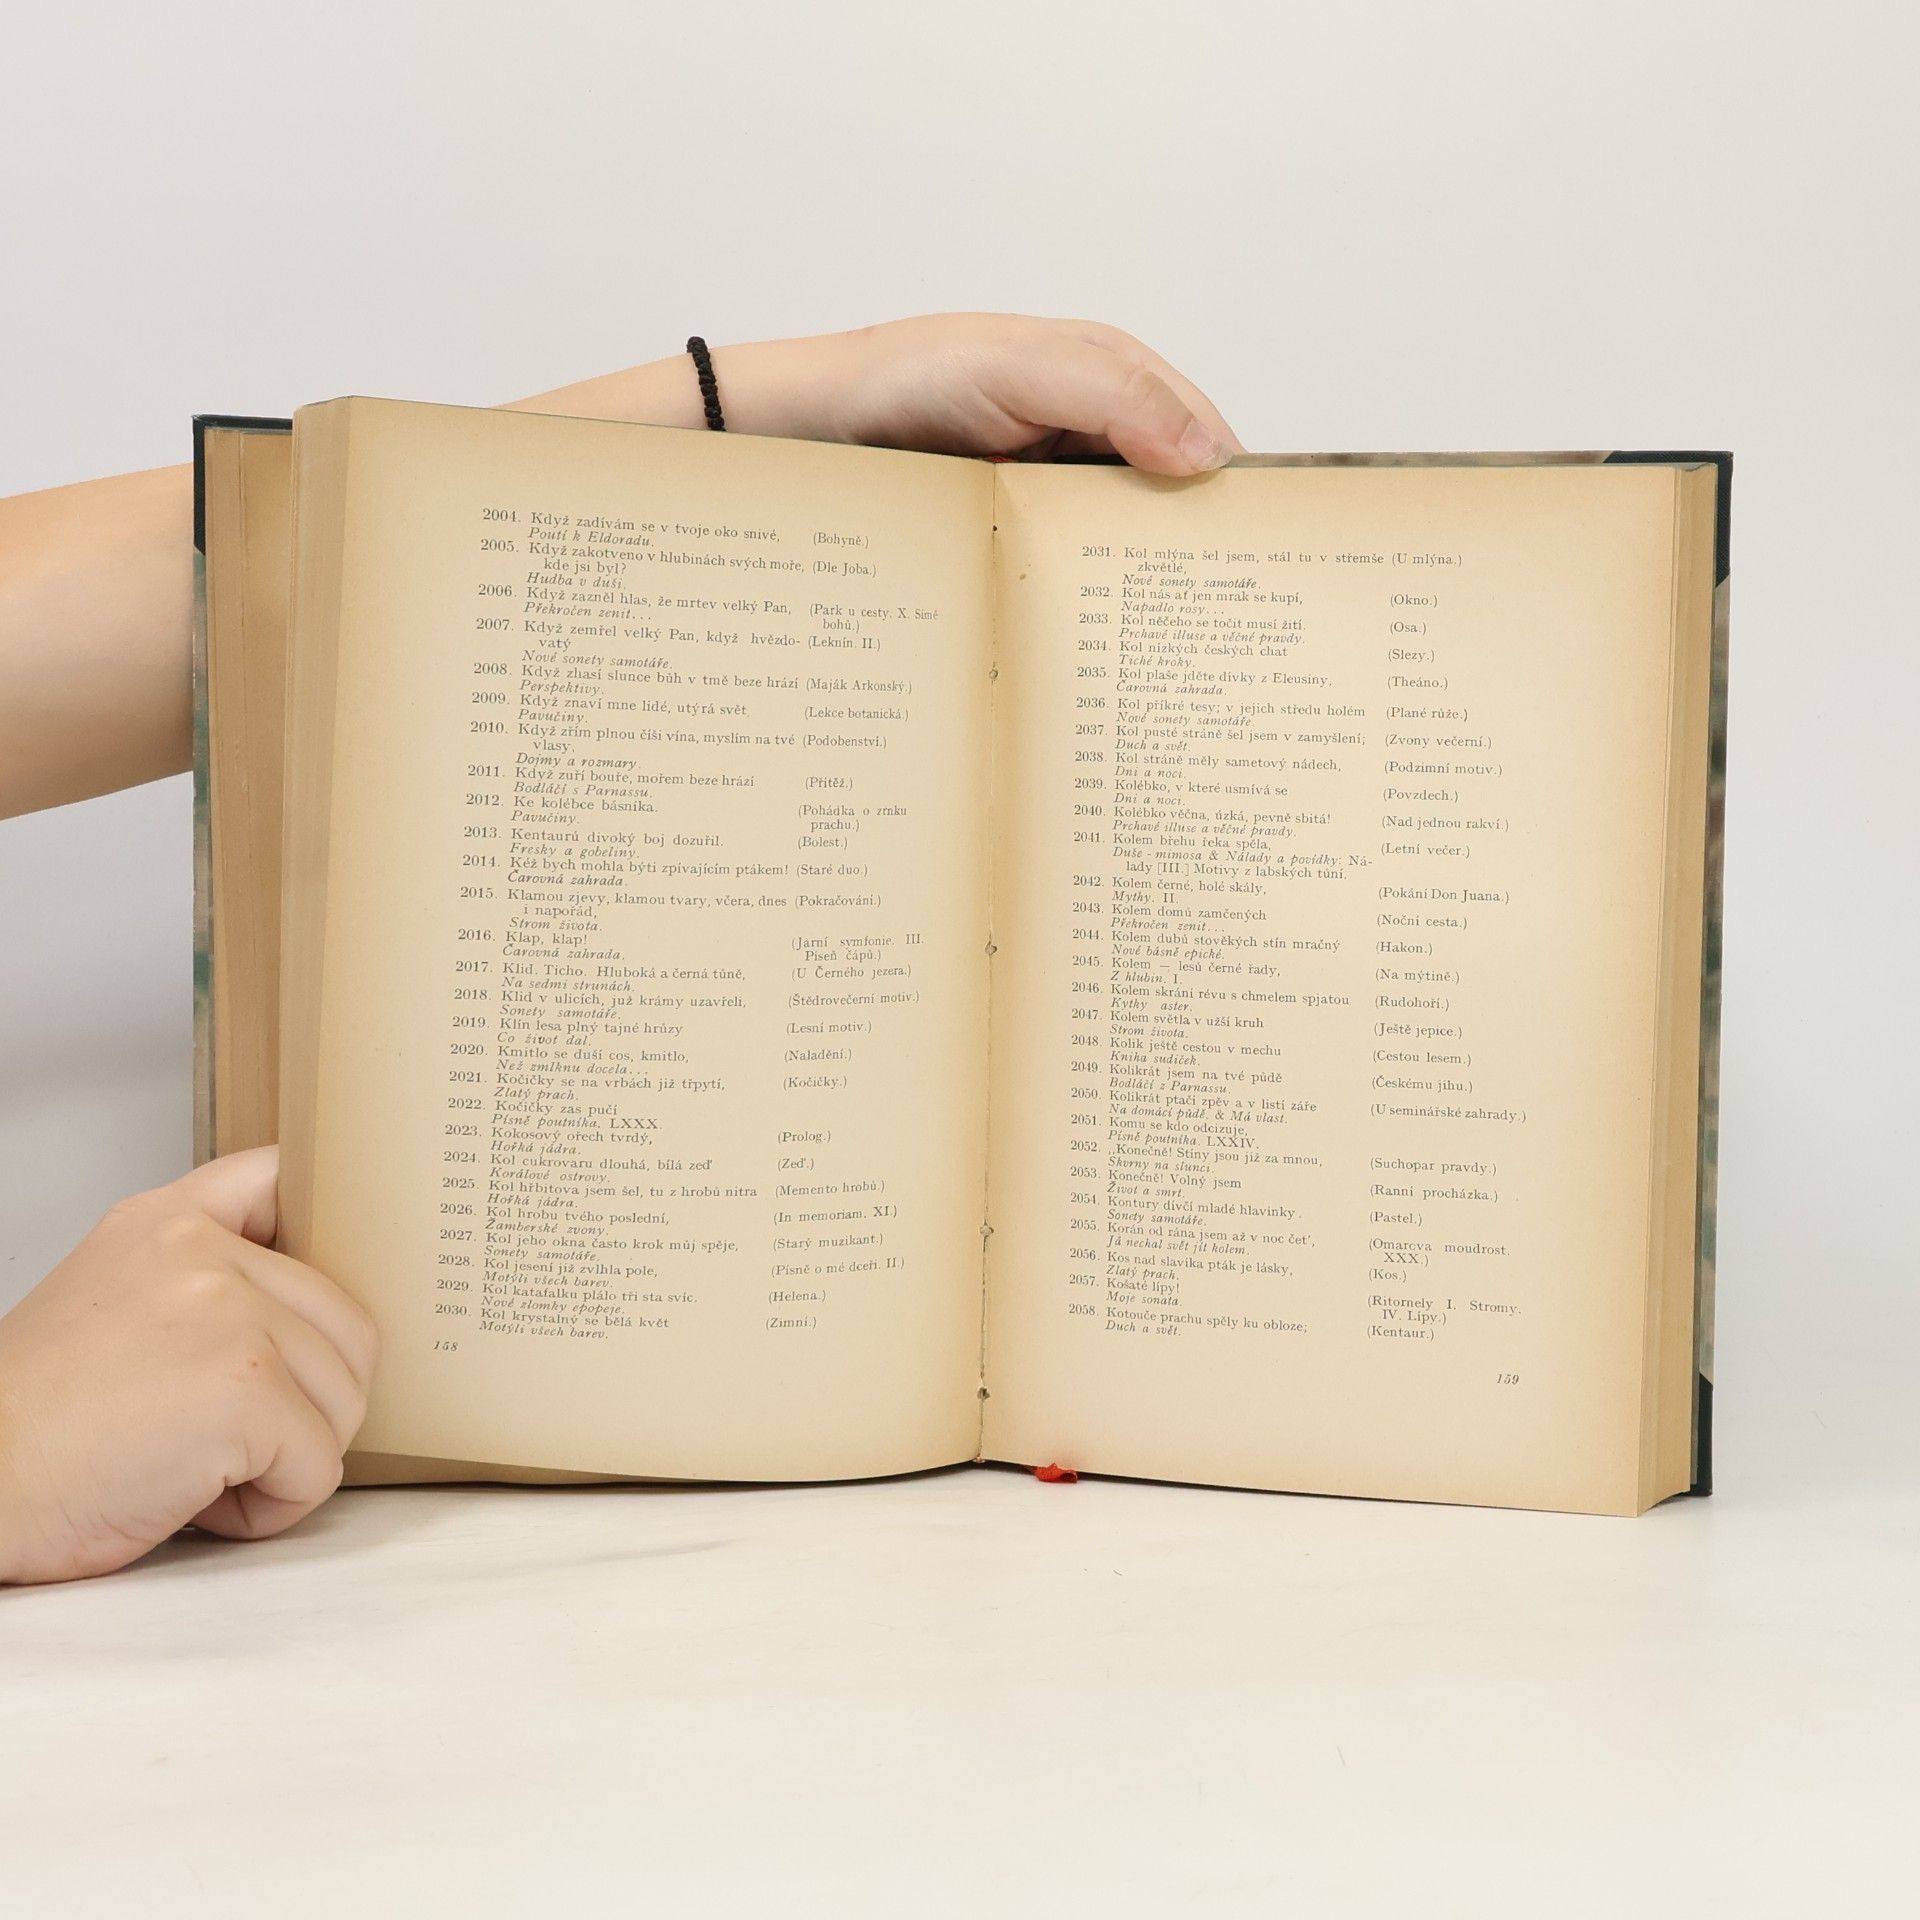 2004. Když zadívám se v tvoje oko snivé, (Bohyně.)
Poutí k Eldoradu.
2005. Když zakotveno v hlubinách svých moře, (Dle Joba.)
kde jsi byl?
Hudba v duši.
2006. Když zazněl hlas, že mrtev velký Pan, (Park u cesty. X. Símě
Překročen zenit... bohů.)
2007. Když zemřel velký Pan, když hvězdo- (Leknín. II.)
vatý
Nové sonety samotáře.
2008. Když zhasí slunce bůh v tmě beze hrází (Maják Arkonský.)
Perspektivy.
2009. Když znaví mne lidé, utýrá svět (Lekce botanická.)
Pavučiny.
2010. Když zřím plnou číši vína, myslím na tvé (Podobenství.)
vlasy,
Dojmy a rozmary.
2011. Když zuří bouře, mořem beze hrází (Přítěž.)
Bodláčí s Parnassu.
2012. Ke kolébce básníka. (Pohádka o zrnku
Pavučiny. prachu.)
2013. Kentaurů divoký boj dozuřil. (Bolest.)
Fresky a gobeliny.
2014. Kéž bych mohla býti zpívajícím ptákem! (Staré duo.)
Čarovná zahrada.
2015. Klamou zjevy, klamou tvary, včera, dnes (Pokračování.)
i napořád,
Strom života.
2016. Klap, klap! (Jarní symfonie. III.
Čarovná zahrada. Píseň čápů.)
2017. Klid. Ticho. Hluboká a černá tůně, (U Černého jezera.)
Na sedmi strunách.
2018. Klid v ulicích, již krámy uzavřeli, (Štědrovečerní motiv.)
Sonety samotáře.
2019. Klín lesa plný tajné hrůzy (Lesní motiv.)
Co život dal.
2020. Kmitlo se duší cos, kmitlo, (Naladění.)
Než zmlknu docela...
2021. Kočičky se na vrbách již třpytí, (Kočičky.)
Zlatý prach.
2022. Kočičky zas pučí
Písně poutníka. LXXX.
2023. Kokosový ořech tvrdý, (Prolog.)
Hořká jádra.
2024. Kol cukrovaru dlouhá, bílá zeď (Zeď.)
Korálové ostrovy.
2025. Kol hřbitova jsem šel, tu z hrobů nitra (Memento hrobů.)
Hořká jádra.
2026. Kol hrobu tvého poslední, (In memoriam. XI.)
Žamberské zvony.
2027. Kol jeho okna často krok můj spěje, (Starý muzikant.)
Sonety samotáře.
2028. Kol jesení již zvlhla pole, (Písně o mé dceři. II.)
Motýli všech barev.
2029. Kol katafalku plálo tři sta svic. (Helena.)
Nové zlomky epopeje.
2030. Kol krystalný se bělá květ (Zimní.)
Motýli všech barev.
158
2031. Kol mlýna šel jsem, stál tu v střemše (U mlýna.)
zkvětlé,
Nové sonety samotáře.
2032. Kol nás ať jen mrak se kupí, (Okno.)
Napadlo rosy...
2033. Kol něčeho se točit musí žití. (Osa.)
Prchavé illuse a věčné pravdy.
2034. Kol nízkých českých chat (Slezy.)
Tiché kroky.
2035. Kol plaše jděte dívky z Eleusiny, (Theáno.)
Čarovná zahrada.
2036. Kol příkré tesy; v jejich středu holém (Plané růže.)
Nové sonety samotáře.
2037. Kol pusté stráně šel jsem v zamyšlení; (Zvony večerní.)
Duch a svět.
2038. Kol stráně měly sametový nádech, (Podzimní motiv.)
Dni a noci.
2039. Kolébko, v které usmívá se (Povzdech.)
Dni a noci.
2040. Kolébko věčna, úzká, pevně sbitá! (Nad jednou rakví.)
Prchavé illuse a věčné pravdy.
2041. Kolem břehu řeka spěla, (Letní večer.)
Duše - mimosa & Nálady a povídky: Ná-
lady [III.] Motivy z labských tůní.
2042. Kolem černé, holé skály, (Pokání Don Juana.)
Mythy. II.
2043. Kolem domů zamčených (Noční cesta.)
Překročen zenit...
2044. Kolem dubů stověkých stín mračný (Hakon.)
Nové básně epické.
2045. Kolem — lesů černé řady, (Na mýtině.)
Z hlubin. I.
2046. Kolem skrání révu s chmelem spjatou (Rudohoří.)
Kytky aster.
2047. Kolem světla v užší kruh (Ještě jepice.)
Strom života.
2048. Kolik ještě cestou v mechu (Cestou lesem.)
Kniha sudiček.
2049. Kolikrát jsem na tvé půdě (Českému jihu.)
Bodláčí z Parnassu.
2050. Kolikrát ptačí zpěv a v listí záře (U seminářské zahrady.)
Na domácí půdě. & Má vlast.
2051. Komu se kdo odcizuje,
Písně poutníka. LXXIV.
2052. „Konečně! Stíny jsou již za mnou, (Suchopar pravdy.)
Skvrny na slunci.
2053. Konečně! Volný jsem (Ranní procházka.)
Život a smrt.
2054. Kontury dívčí mladé hlavinky . (Pastel.)
Sonety samotáře.
2055. Korán od rána jsem až v noc čet', (Omarova moudrost.
Já nechal svět jít kolem. XXX.)
2056. Kos nad slavíka pták je lásky, (Kos.)
Zlatý prach.
2057. Košaté lípy! (Ritornely I. Stromy.
Moje sonata. IV. Lípy.)
2058. Kotouče prachu spěly ku obloze; (Kentaur.)
Duch a svět.
159